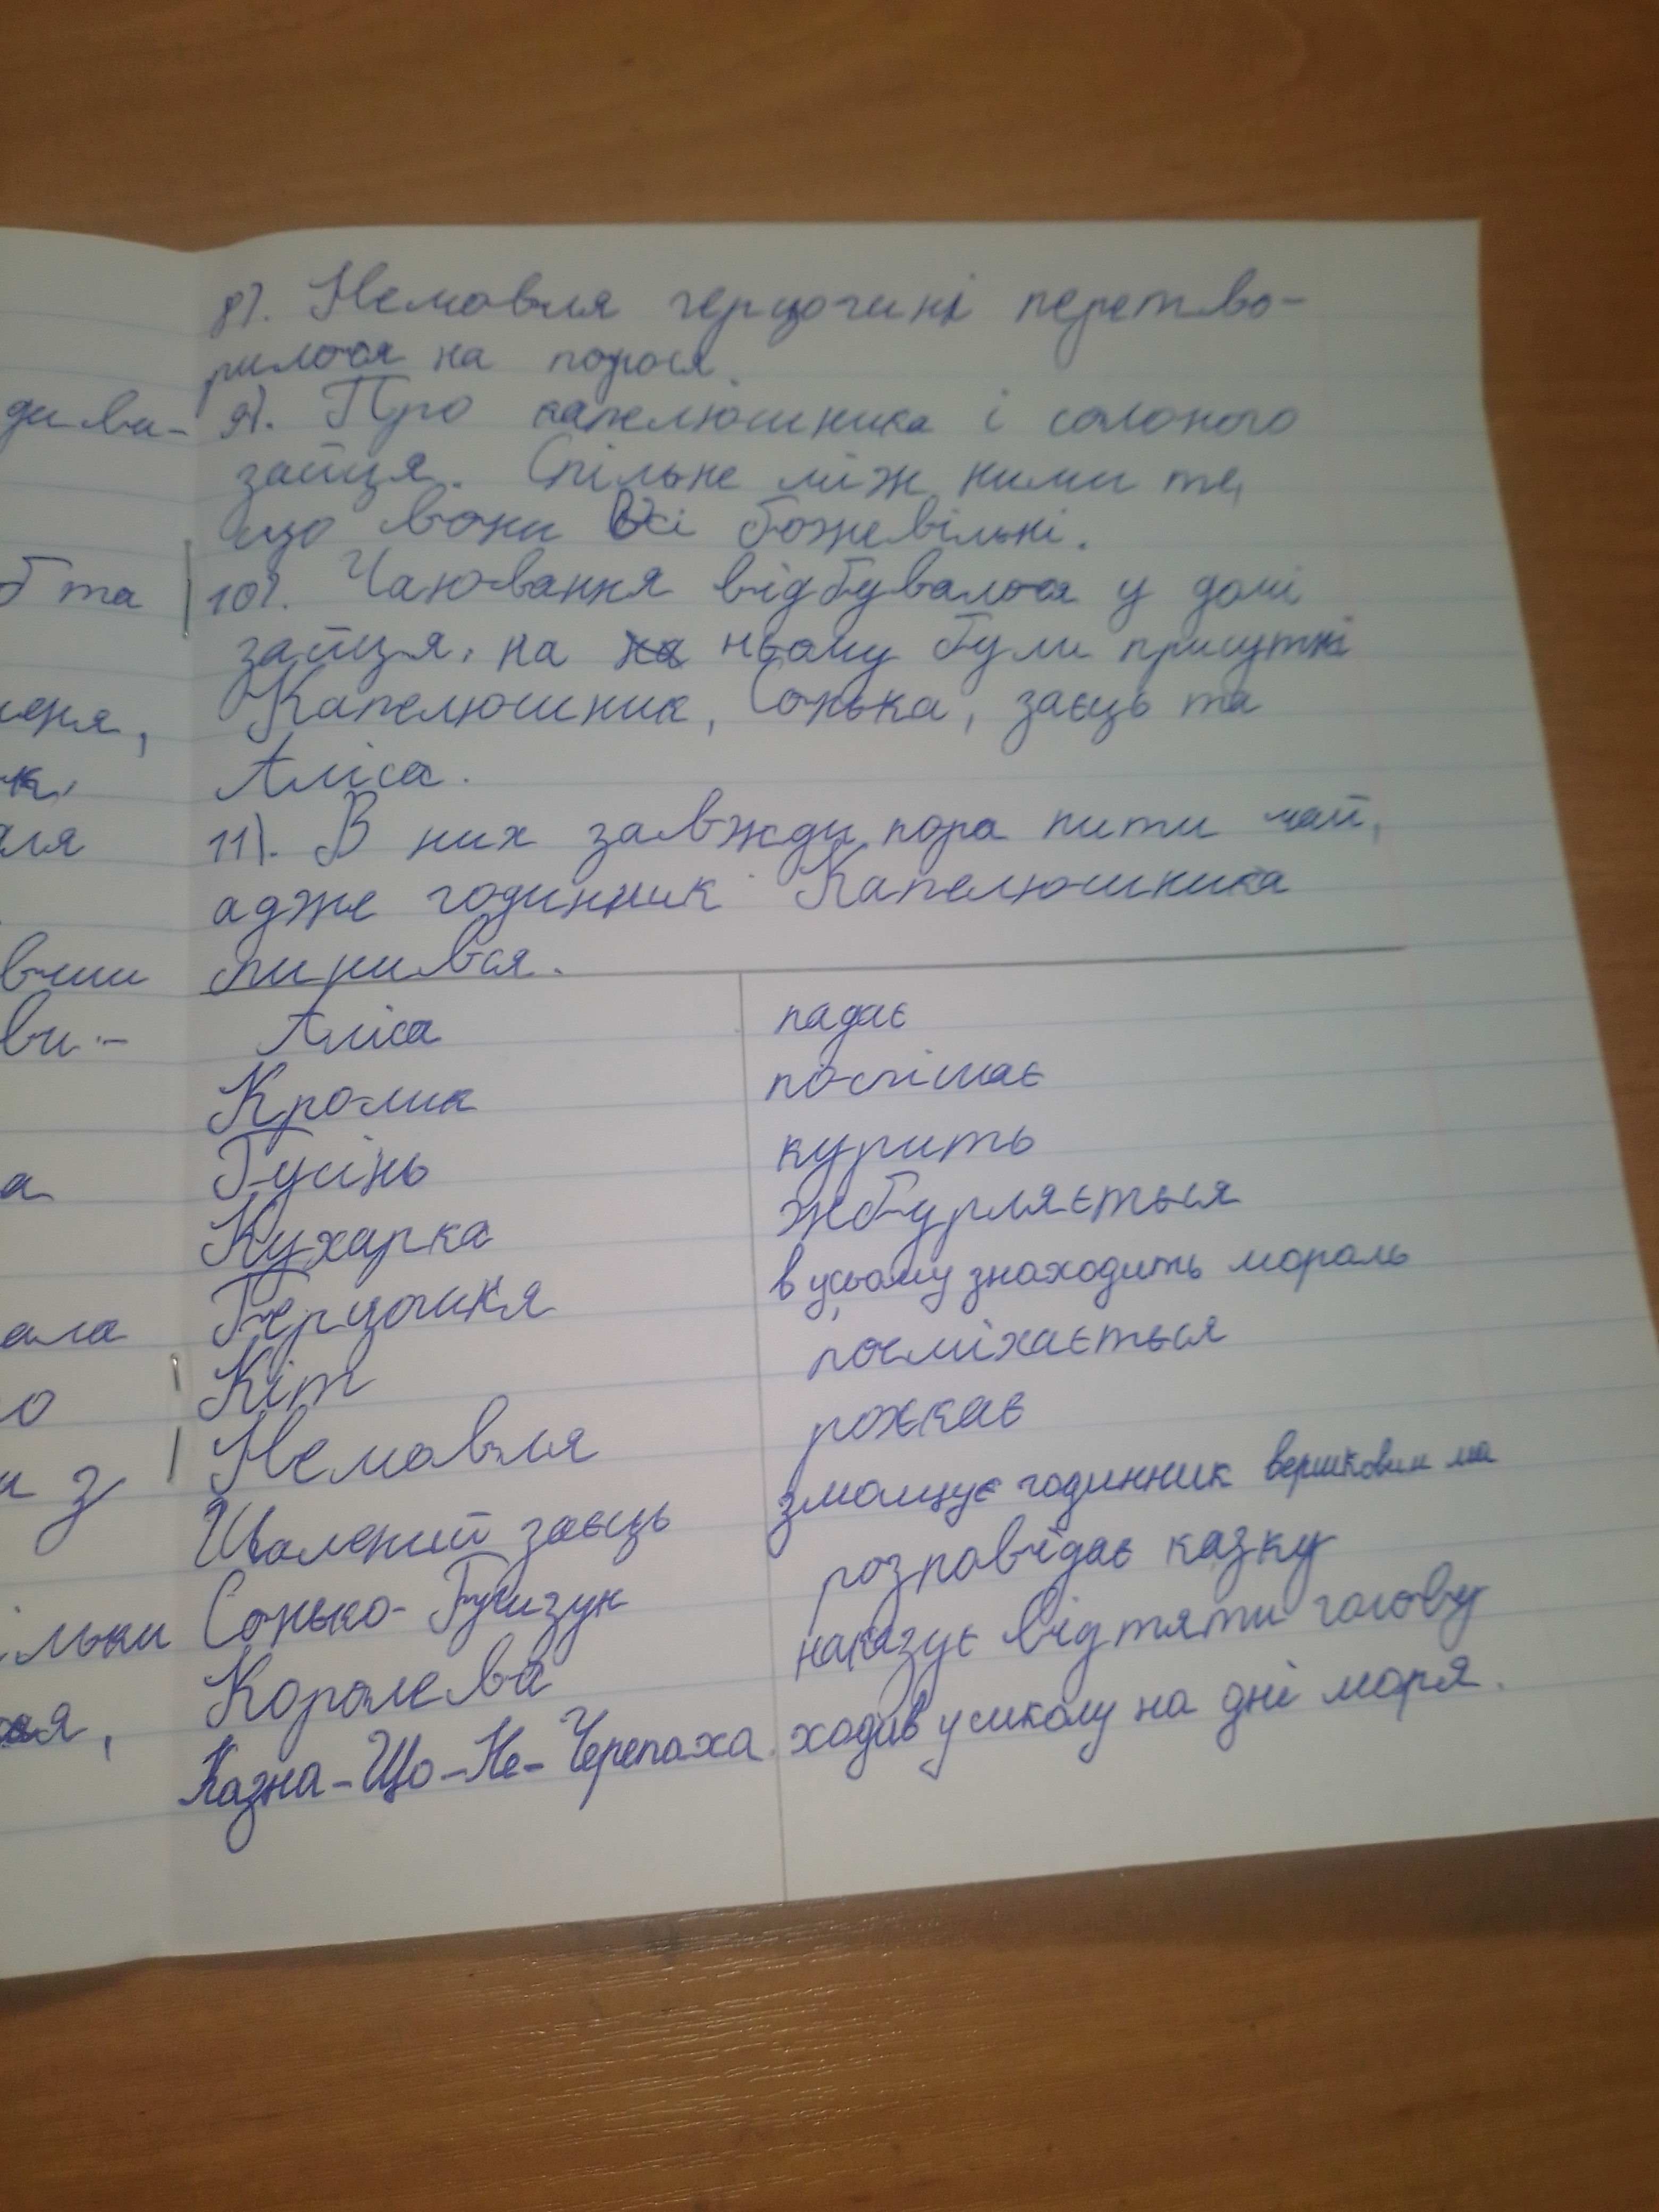 8). Немовля герцогині перетво-
рилося на порося.
9). Про капелюшника і солоного
зайця. Спільне між ними те,
що вони всі божевільні.
10). Чаювання відбувалося у домі
зайця, на ньому були присутні
Капелюшник, Сонька, заєць та
Аліса.
11). В них завжди пора пити чай,
адже годинник Капелюшника
спинився.
Аліса падає
Кролик поспішає
Гусінь курить
Кухарка жбурляється
Герцогиня в усьому знаходить мораль
Кіт посміхається
Немовля рохкає
Шалений заєць змащує годинник вершковим ма
Сонько-Гризун розповідає казку
Королева наказує відтяти голову
Казна-Що-Не-Черепаха ходив у школу на дні моря.
диви-
б та
меня,
ля
вши
ви-
а
ала
о
и з
ільки
ся,